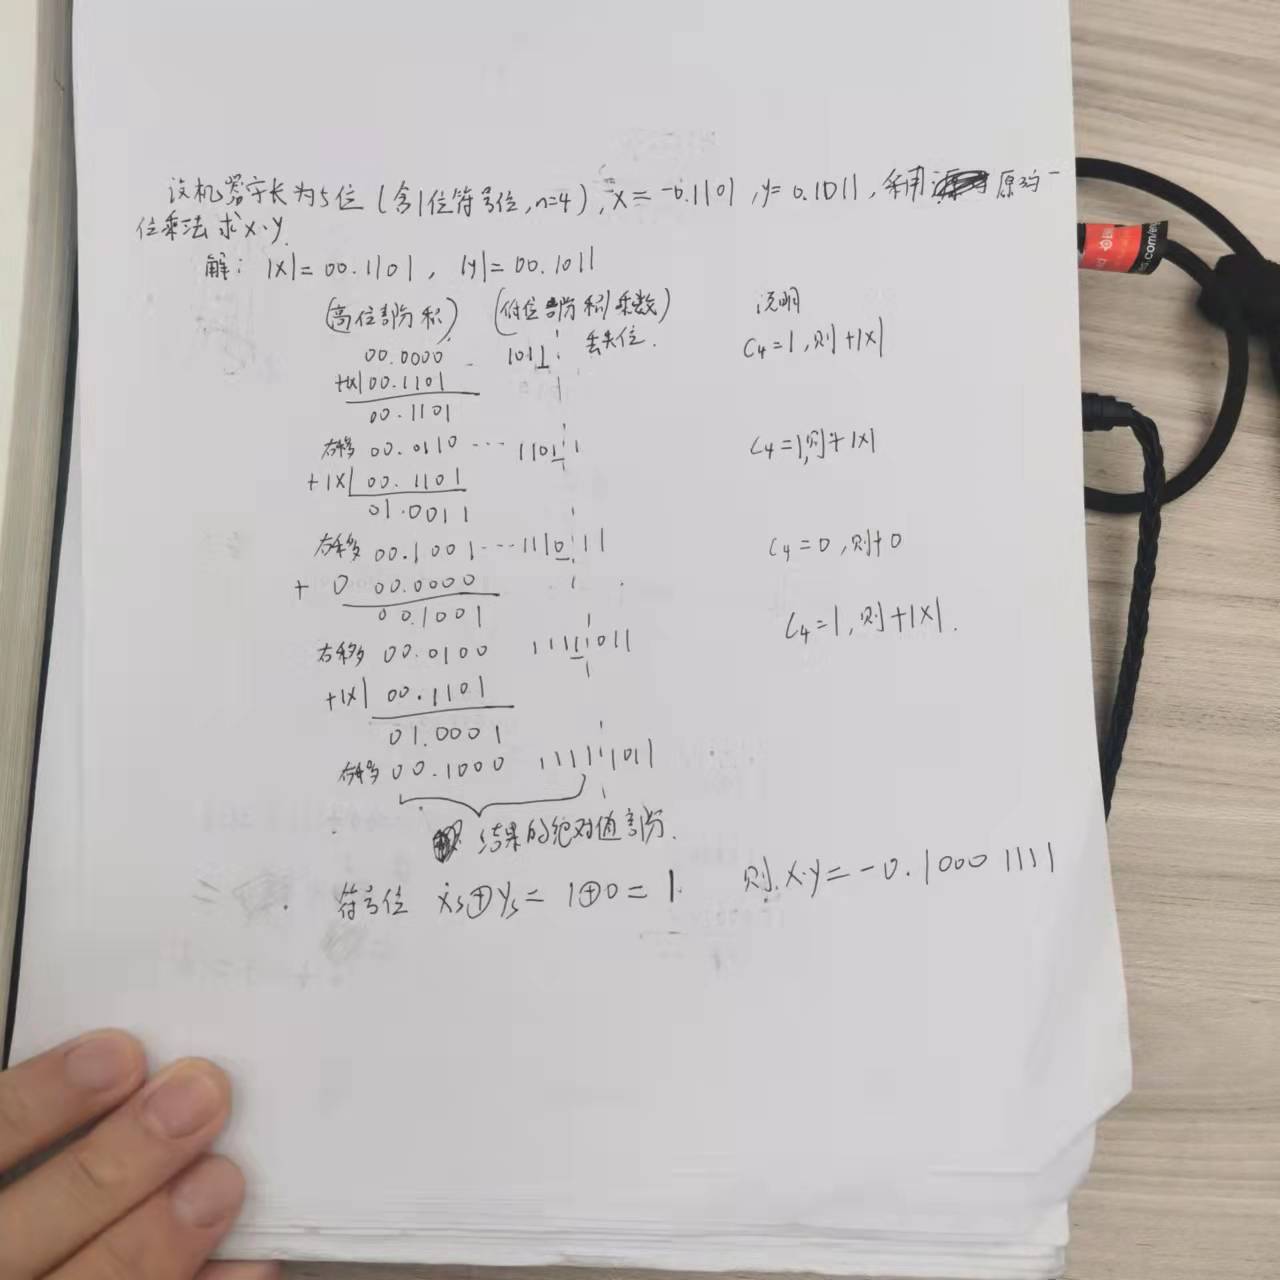 设机器字长为5位(含1位符号位,n=4),x=-0.1101,y=0.1011,采用原码一
位乘法求x·y.
解: |x|=00.1101, |y|=00.1011
(高位部分积) (低位部分积/乘数) 说明
00.0000 1011 丢失位. C4=1,则+|x|
+|x| 00.1101
00.1101
右移 00.0110 ··· 1101 1 C4=1,则+|x|
+|x| 00.1101
01.0011
右移 00.1001 ··· 1110 11 C4=0,则+0
+ 0 00.0000
00.1001
右移 00.0100 1111 011 C4=1,则+|x|.
+|x| 00.1101
01.0001
右移 00.1000 1111 1011
结果的绝对值部分.
符号位 xs⊕ys=1⊕0=1. 则x·y=-0.10001111